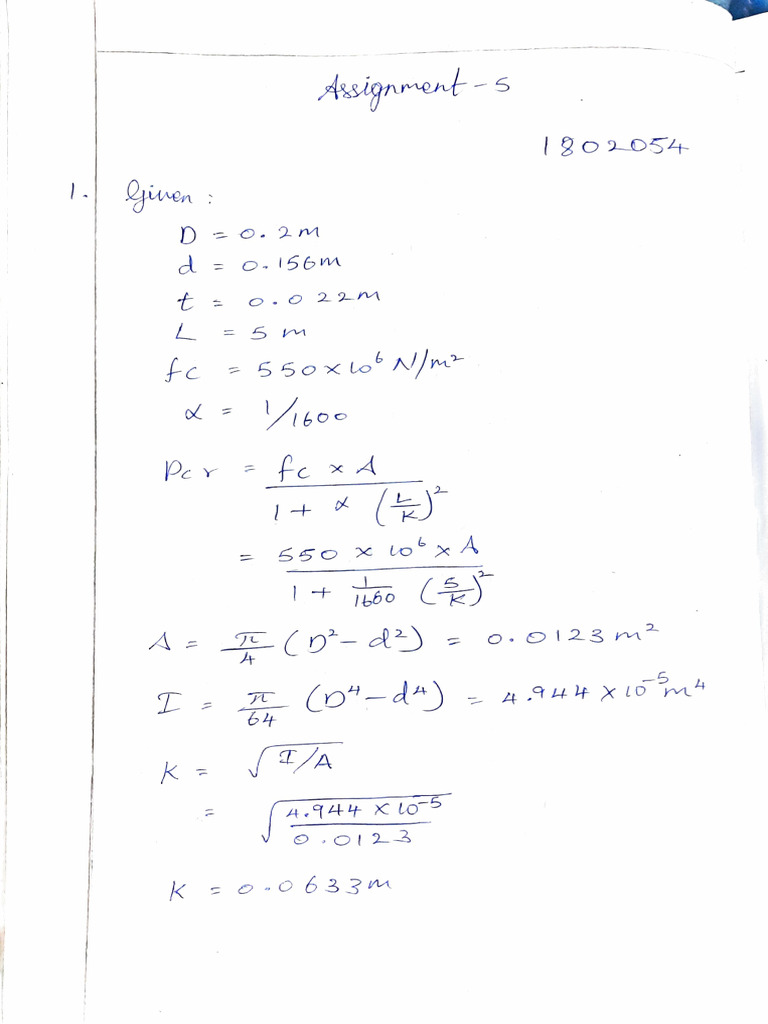 Assignment - 5
1802054
1. Given :
D = 0.2m
d = 0.156m
t = 0.022m
L = 5 m
fc = 550 × 10⁶ N/m²
α = 1/1600
Pcr = fc × A
1 + α (L/K)²
= 550 × 10⁶ × A
1 + 1/1600 (5/K)²
A = π/4 (D² - d²) = 0.0123 m²
I = π/64 (D⁴ - d⁴) = 4.944 × 10⁻⁵ m⁴
K = √I/A
= √4.944 × 10⁻⁵
0.0123
K = 0.0633m